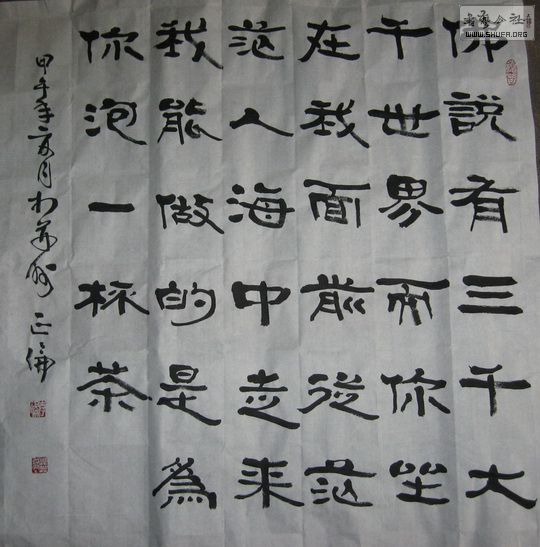 佛說有三千大
千世界而你坐
在我面前從茫
茫人海中走來
我能做的是爲
你泡一杯茶
甲午年
书艺公社
WWW.SHUFA.ORG